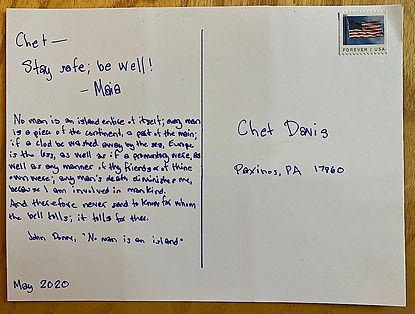 Chet —
Stay safe; be well!
— Maia
No man is an island entire of itself; every man
is a piece of the continent, a part of the main;
if a clod be washed away by the sea, Europe
is the less, as well as if a promontory were, as
well as any manner of thy friends or of thine
own were; any man's death diminishes me,
because I am involved in mankind.
And therefore never send to know for whom
the bell tolls; it tolls for thee.
John Donne, "No man is an island"
May 2020
FOREVER / USA
Chet Davis
Paxinos, PA 17860